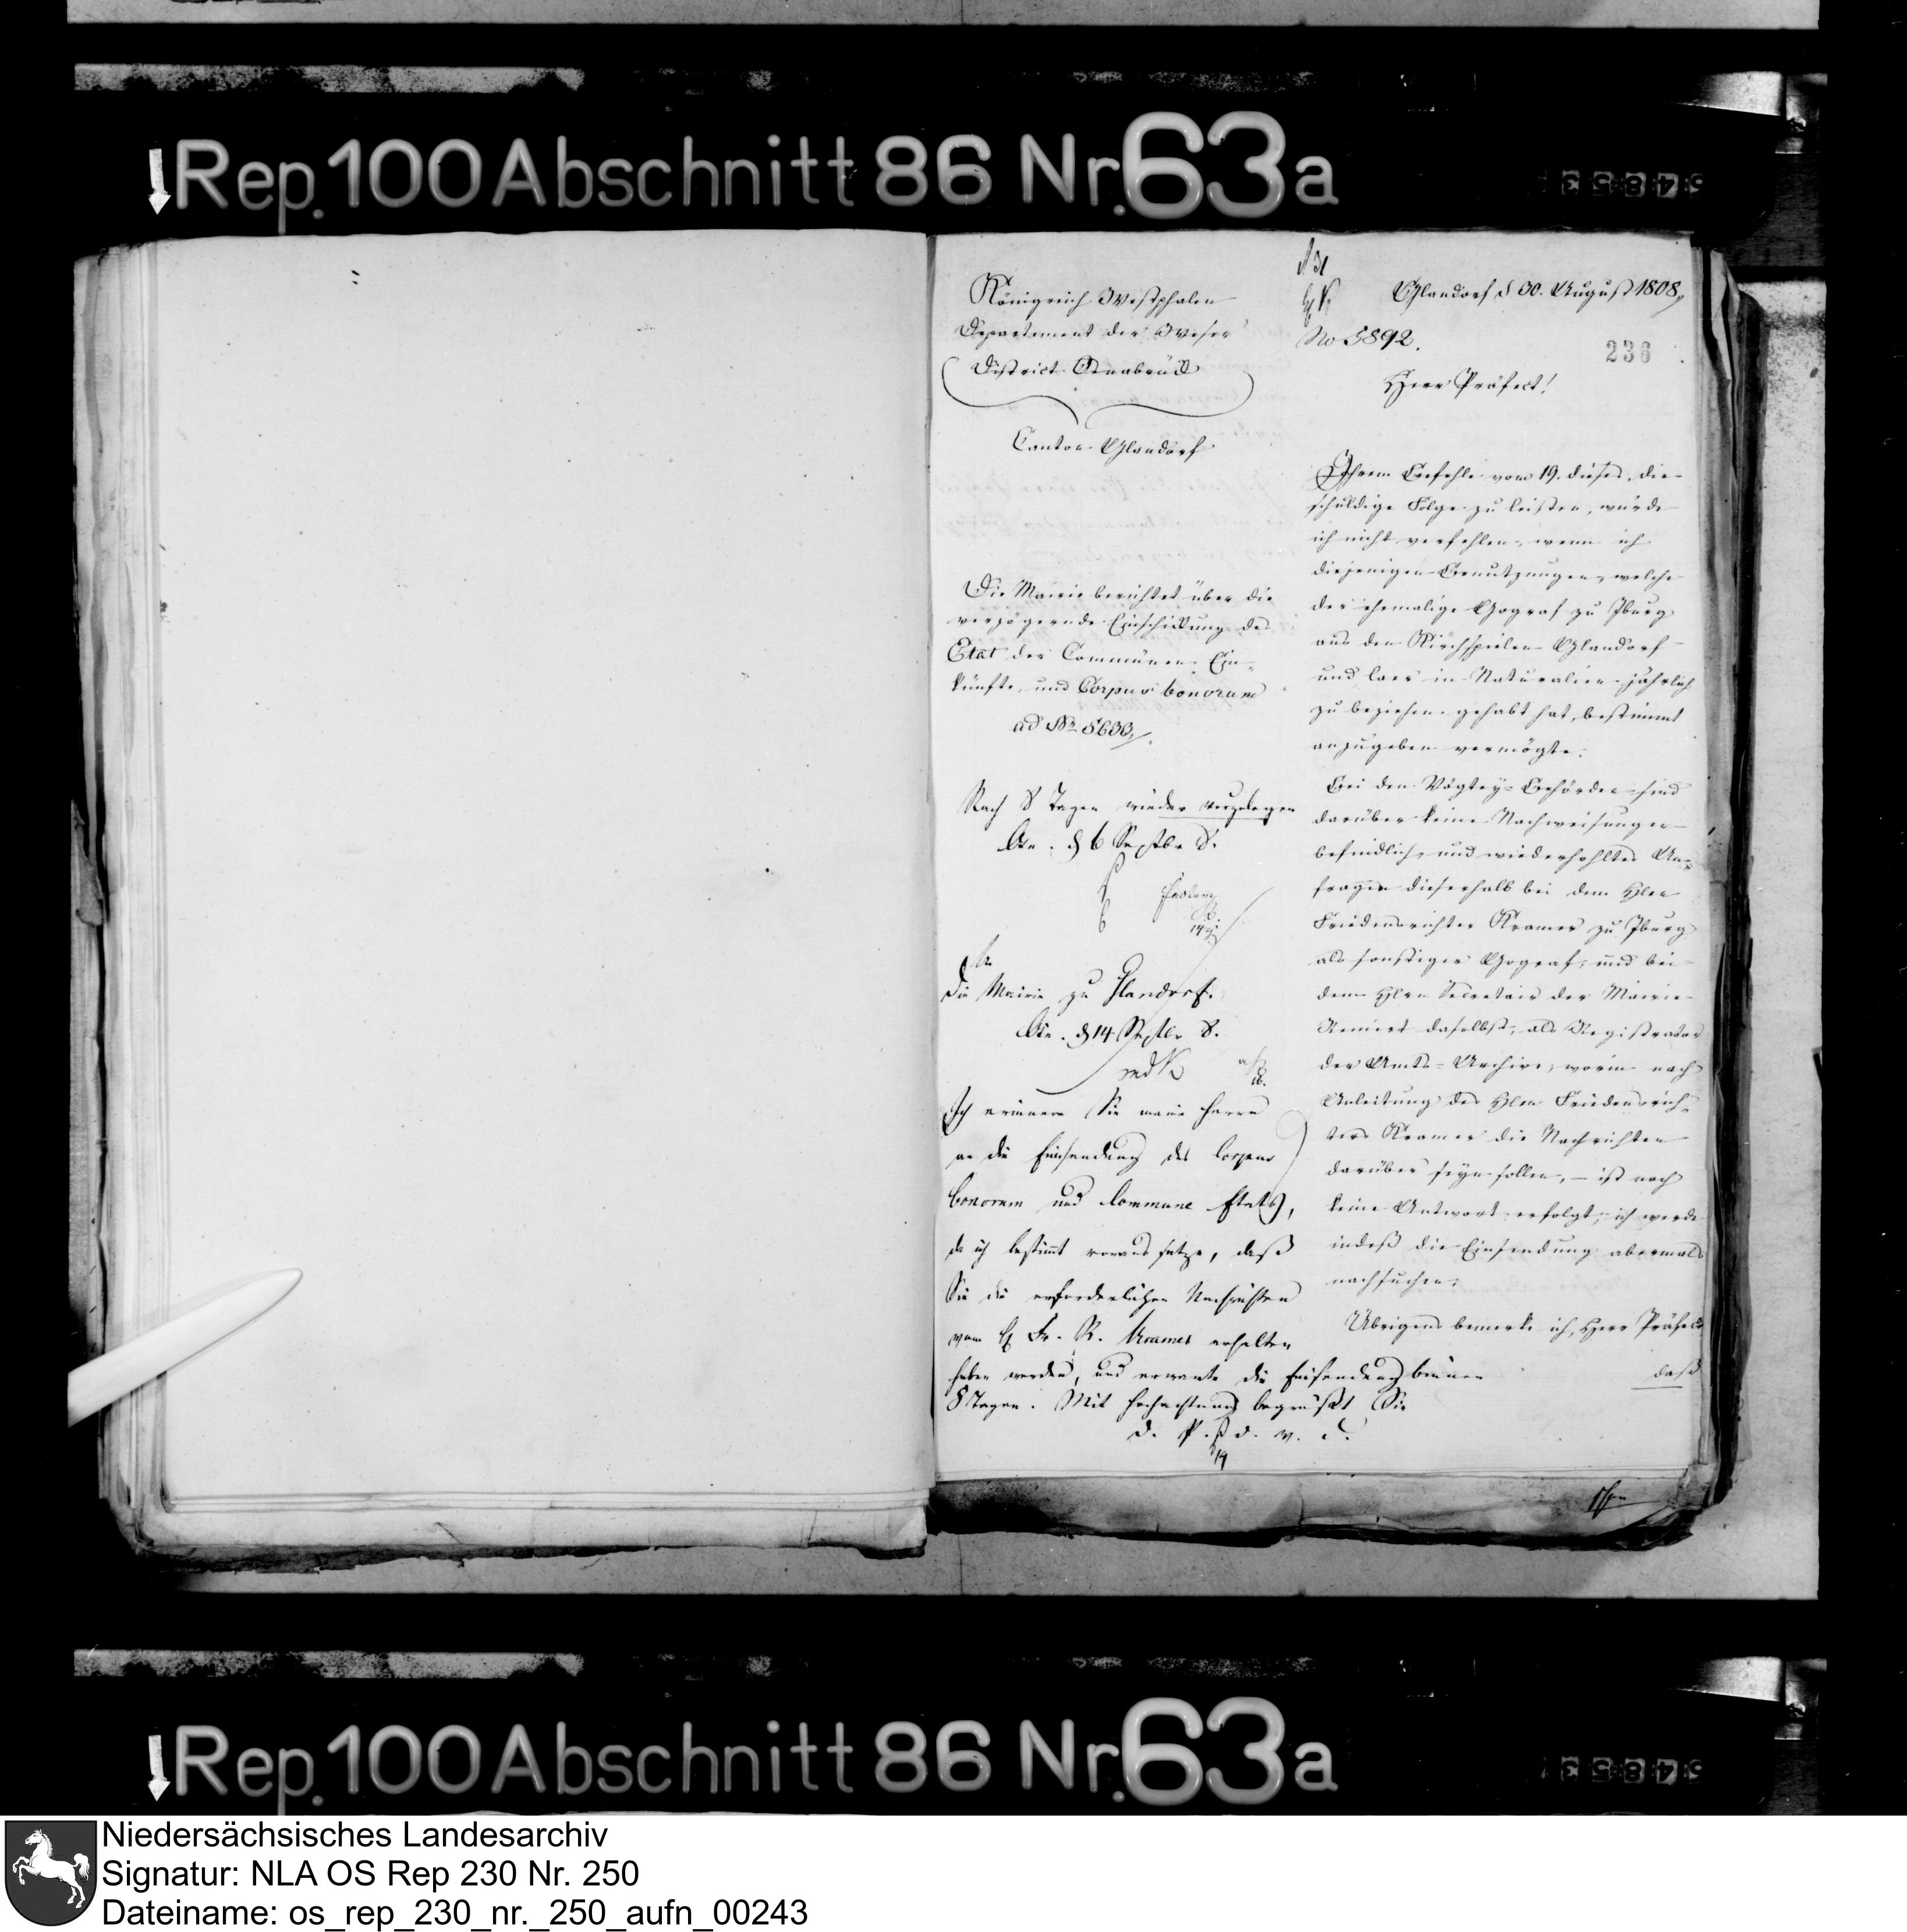 Rep. 100 Abschnitt 86 Nr. 63a
Königreich Westphalen
Departement der Weser
District Osnabrück
Canton Glandorf
Die Mairie berichtet über die
verzögernde Einschickung des
Etat der Communen Ein-
künfte, und Corpus bonorum
ad No 5633.
Nach 8 Tagen wieder vorzulegen
Osn. d 6 Septbr 8.
An
die Mairie zu Glandorf.
Osn. d 14 Septbr 8.
Ich erinnere Sie meine Herrn
an die Einsendung des Corpus
bonorum und Commune Etats,
da ich bestimt voraus setze, daß
Sie die erforderlichen Nachrichten
vom H Fr. R. Kramer erhalten
haben werden, und erwarte die Einsendung binnen
8 Tagen. Mit Hochachtung begrüßt Sie
d. P. d. W. D.
Glandorf d 30. August 1808,
No 5892.
236
Herr Präfect!
Ihrem Befehle vom 19. dieses, die
schuldige Folge zu leisten, würde
ich nicht verfehlen, wenn ich
diejenigen Benutzungen, welche
der ehemalige Gograf zu Iburg
aus den Kirchspielen Glandorf
und Laer in Naturalien jährlich
zu beziehen gehabt hat, bestimmt
anzugeben vermögte.
Bei den Vogtey-Behörden sind
darüber keine Nachweisungen
befindlich, und wiederhohltes An-
fragen dieserhalb bei dem Hrn
Friedensrichter Kramer zu Iburg
als sonstiger Gograf, und bei
dem Hrn Secretair der Mairie
daselbst, als Registrator
der Amts-Archive, worin nach
Anleitung des Hrn Friedensrich-
ters Kramer die Nachrichten
darüber seyn sollen, – ist noch
keine Antwort erfolgt, ich werde
indeß die Einsendung abermals
nachsuchen.
Übrigens bemerke ich, Herr Präfect
daß
Rep. 100 Abschnitt 86 Nr. 63a
Niedersächsisches Landesarchiv
Signatur: NLA OS Rep 230 Nr. 250
Dateiname: os_rep_230_nr._250_aufn_00243